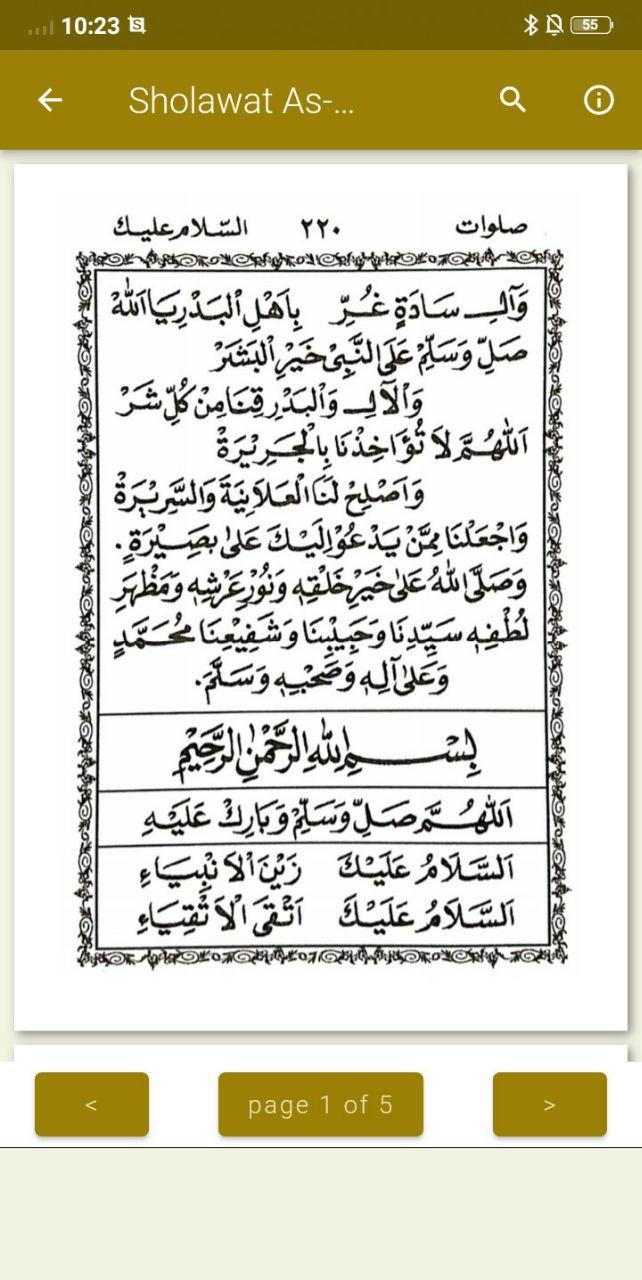 10:23
55
Sholawat As-...
صلوات ٢٢٠ السّلام عليك
وَآلِ سَادَةٍ غُرِّ بِاَهْلِ الْبَدْرِ يَا اَللهْ
صَلِّ وَسَلِّمْ عَلَى النَّبِىْ خَيْرِ الْبَشَرْ
وَالْآلِ وَالْبَدْرِ قِنَا مِنْ كُلِّ شَرْ
اَللّٰهُمَّ لَا تُؤَاخِذْنَا بِالْجَرِيْرَةْ
وَاَصْلِحْ لَنَا الْعَلَانِيَةَ وَالسَّرِيْرَةْ
وَاجْعَلْنَا مِمَّنْ يَدْعُوْا اِلَيْكَ عَلَى بَصِيْرَةٍ.
وَصَلَّى اللهُ عَلَى خَيْرِ خَلْقِهِ وَنُوْرِ عَرْشِهِ وَمَظْهَرِ
لُطْفِهِ سَيِّدِنَا وَحَبِيْبِنَا وَشَفِيْعِنَا مُحَمَّدٍ
وَعَلَى آلِهِ وَصَحْبِهِ وَسَلَّمَ.
بِسْمِ اللهِ الرَّحْمٰنِ الرَّحِيْمِ
اَللّٰهُمَّ صَلِّ وَسَلِّمْ وَبَارِكْ عَلَيْهِ
اَلسَّلَامُ عَلَيْكَ زَيْنَ الْاَنْبِيَاءِ
اَلسَّلَامُ عَلَيْكَ اَتْقَى الْاَتْقِيَاءِ
< page 1 of 5 >